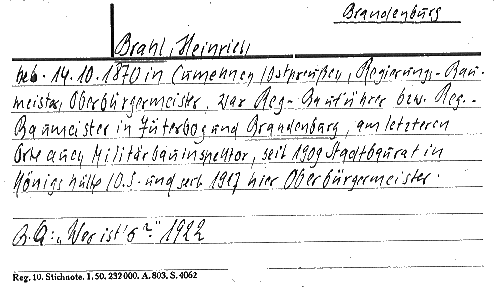 Brandenburg
Brahl, Heinrich,
geb. 14.10.1870 in Cumehnen, Ostpreußen, Regierungs-Bau-
meister, Oberbürgermeister, war Reg-Bauführer bzw. Reg.-
Baumeister in Jüterbog und Brandenburg, am letzteren
Orte auch Militärbauinspektor, seit 1909 Stadtbaurat in
Königshütte O.S. und seit 1917 hier Oberbürgermeister.
B.Q: „Wer ist's?" 1922
Reg. 10. Stichnote. I. 50. 232000. A. 803. S. 4062